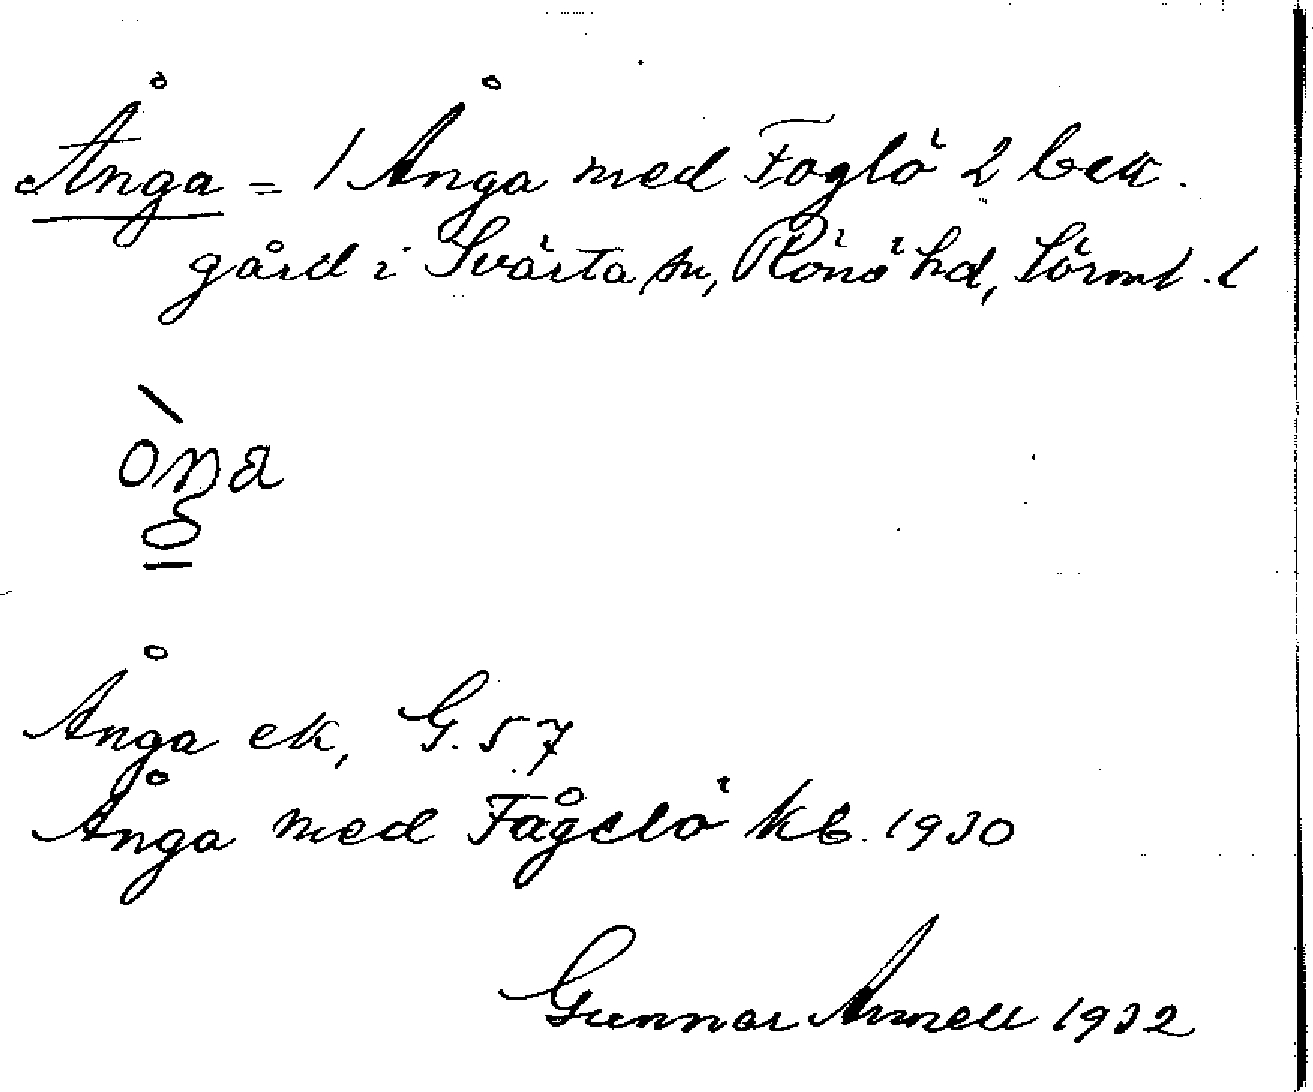 Ånga = 1 Ånga med Foglö 2 bek.
gård i Svärta sn, Rönö hd, Sörml. l
òŋa
Ånga ek, G. 57
Ånga med Fågelö kb. 1930
Gunnar Annell 1932